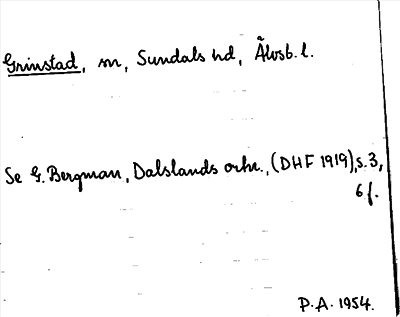 Grinstad, sn, Sundals hd, Älvsb. l.
Se G. Bergman, Dalslands orhr., (DHF 1919), s. 3,
6 f.
P.A. 1954.